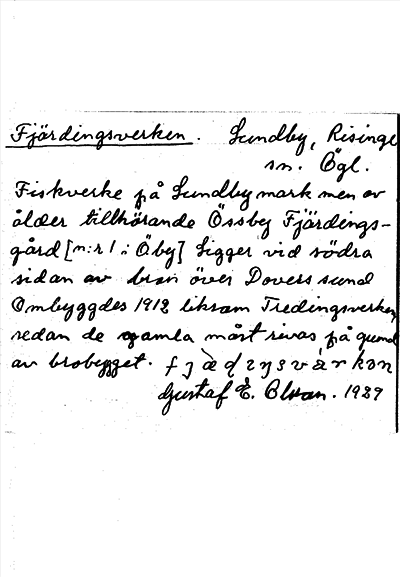 Fjärdingsverken. Sundby, Risinge
sn. Ögl.
Fiskverke på Sundby mark men av
ålder tillhörande Össby Fjärdings-
gård [n:r 1 i Öby] Ligger vid södra
sidan av bron över Dovers sund
Ombyggdes 1912 liksom Tredingsverken
sedan de gamla måst rivas på grund
av brobygget.
Gustaf E. Olson. 1929